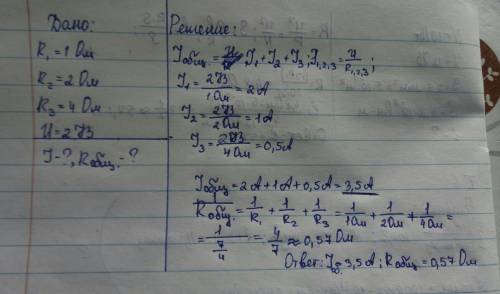 Дано:
R₁=1 Ом
R₂=2 Ом
R₃=4 Ом
U=2 В
I-?, Rобщ.-?
Решение:
Iобщ.= I₁+I₂+I₃; I₁,₂,₃=U/R₁,₂,₃;
I₁=2В/1Ом=2А
I₂=2В/2Ом=1А
I₃=2В/4Ом=0,5А
Iобщ=2А+1А+0,5А=3,5А
Rобщ.=1/R₁+1/R₂+1/R₃=1/1Ом+1/2Ом+1/4Ом=
=1/(7/4)=4/7≈0,57Ом
Ответ: I=3,5А; Rобщ.=0,57 Ом